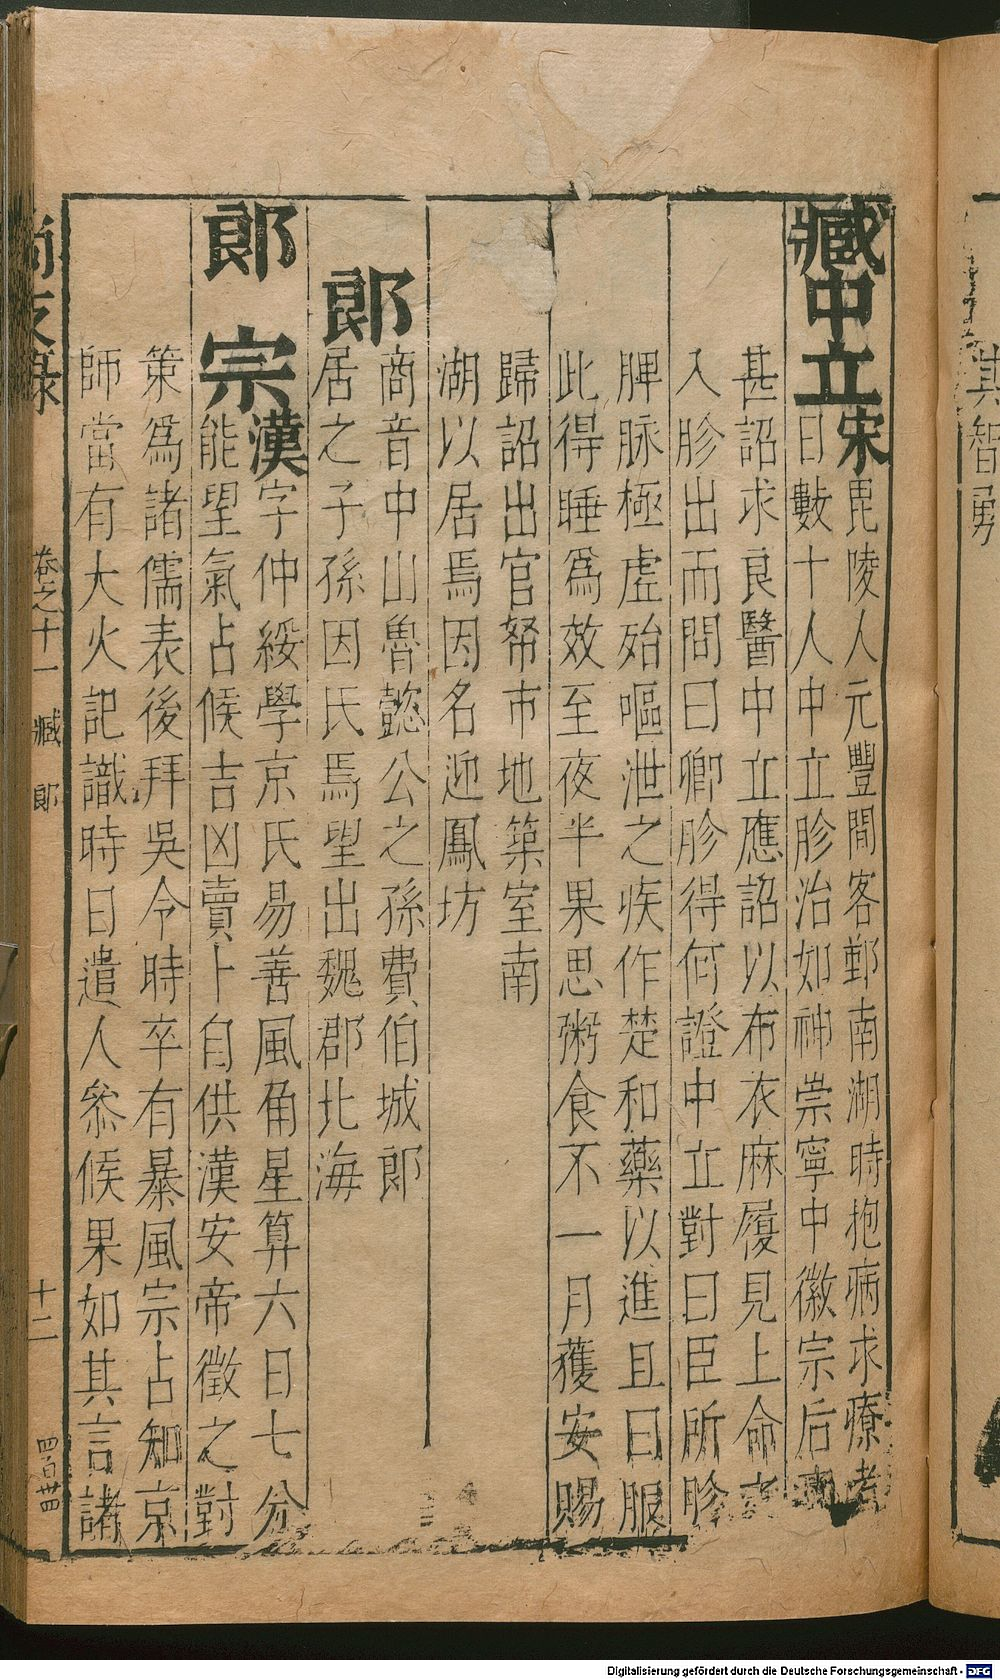 臧中立 宋 毘陵人元豐間客鄞南湖時抱病求療者
日數十人中立胗治如神崇寧中徽宗后病
甚詔求良醫中立應詔以布衣麻履見上命
入胗出而問曰卿胗得何證中立對曰臣所胗
脾脉極虛殆嘔泄之疾作楚和藥以進且曰服
此得睡爲效至夜半果思粥食不一月獲安賜
歸詔出官帑市地築室南
湖以居焉因名迎鳳坊
郎
商音中山魯懿公之孫費伯城郎
居之子孫因氏焉望出魏郡北海
郎宗 漢 字仲綏學京氏易善風角星算六日七分
能望氣占候吉凶賣卜自供漢安帝徵之對
策爲諸儒表後拜吳令時卒有暴風宗占知京
師當有大火記識時日遣人叅候果如其言諸
尚友錄 卷之十一 臧 郎 十二 四百卌
其智勇
Digitalisierung gefördert durch die Deutsche Forschungsgemeinschaft - DFG